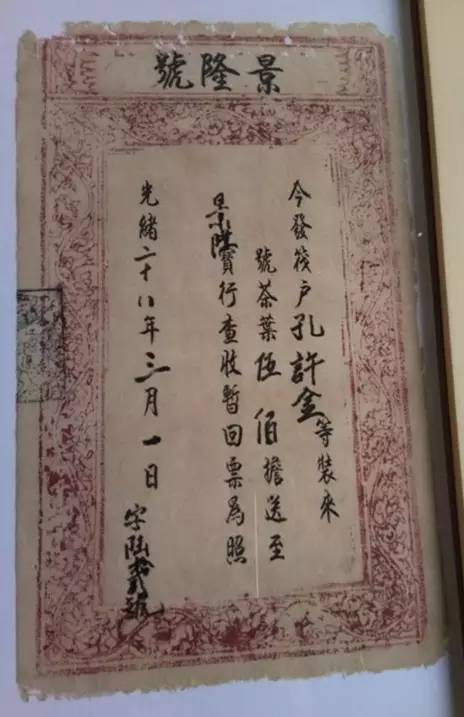 景隆號
今發筏户孔許金等裝來
號茶葉伍佰擔送至
景隆寶行查收暫回票為照
光緒二十八年三月一日
字陸拾貳號